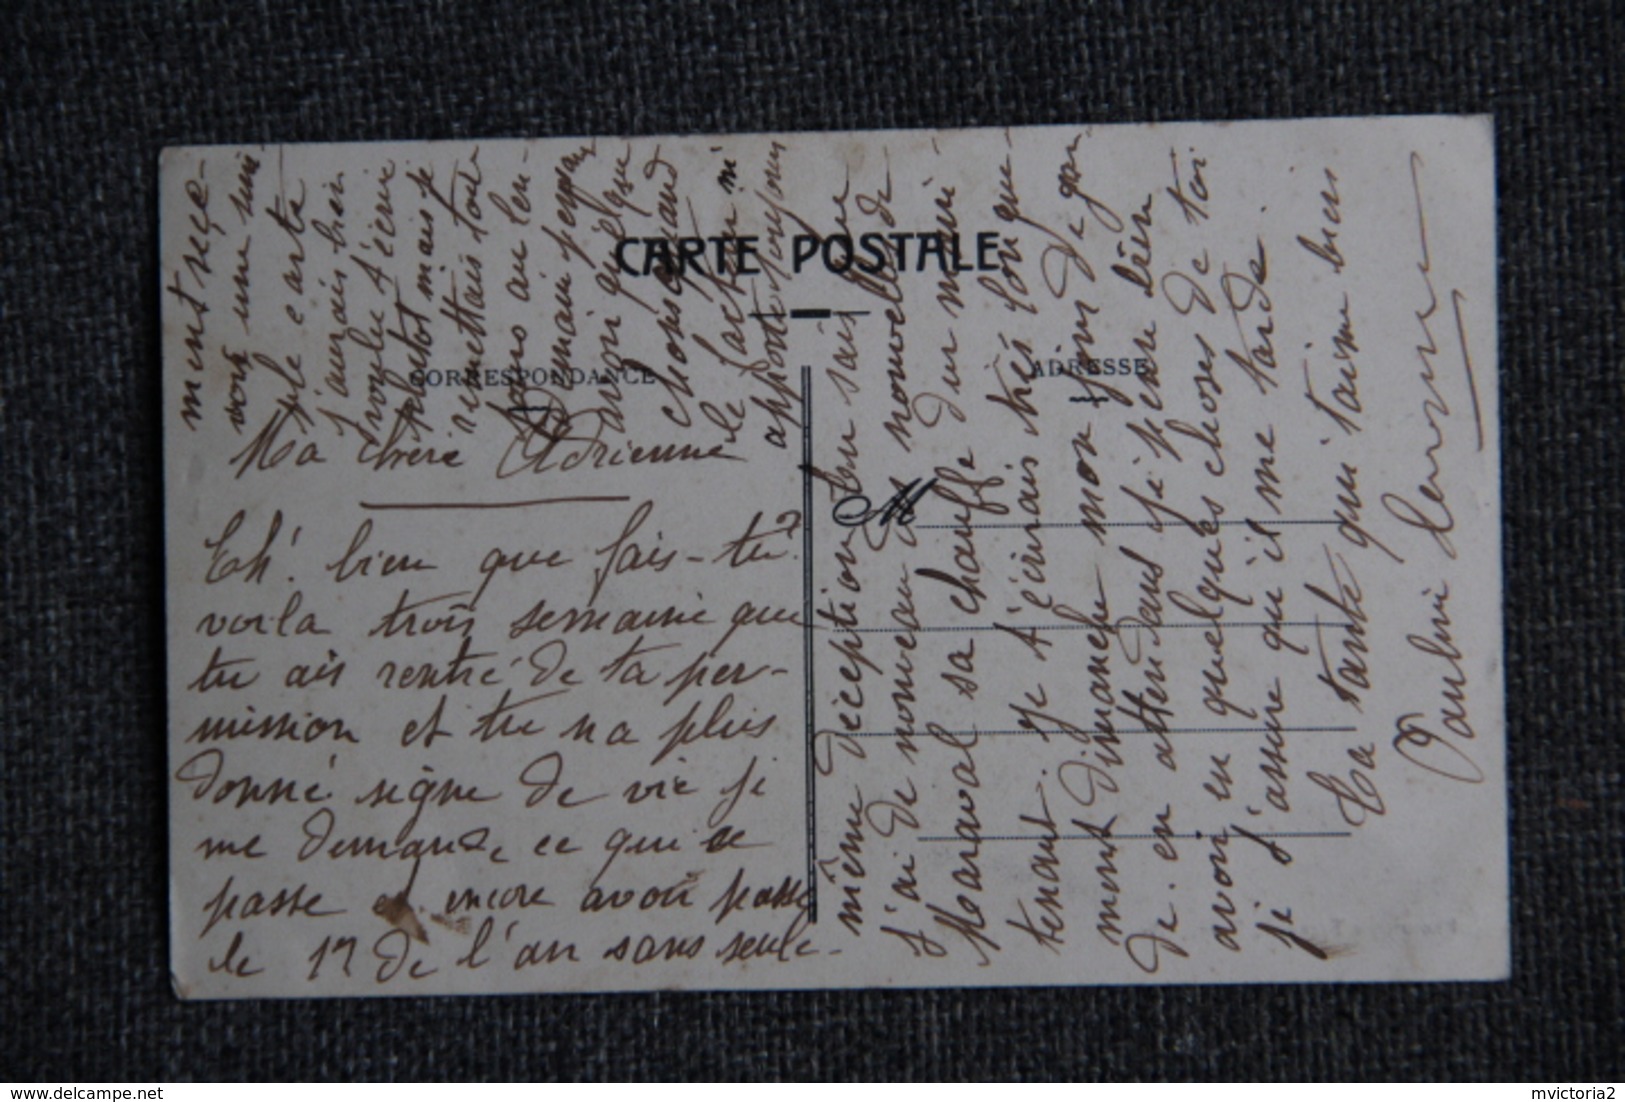 CARTE POSTALE
CORRESPONDANCE
ADRESSE
M
Ma chère Adrienne
Eh! bien que fais-tu?
voila trois semaine que
tu ais rentré de ta per-
mission et tu na plus
donné signe de vie je
me demande, ce qui se
passe et encore avoir passé
le 1r de l'an sans seule-
ment reçe-
voir une sim-
ple carte
j'aurais bien
voulu t'écrir
plutot mais je
remettais tout
jours au len-
demain j'espai
avoir quelque
chose quand
le facteur
apporte toujours
même déception. Tu sais que
j'ai de nouveau des nouvelle de
sa chauffe d'un main-
tenant. Je t'écirais très longue-
ment dimanche mon jour de gar-
de. en attendans je pense bien
avoir en quelques choses de toi
je t'assure qu'il me tarde.
Ta tante qui t'aime bien